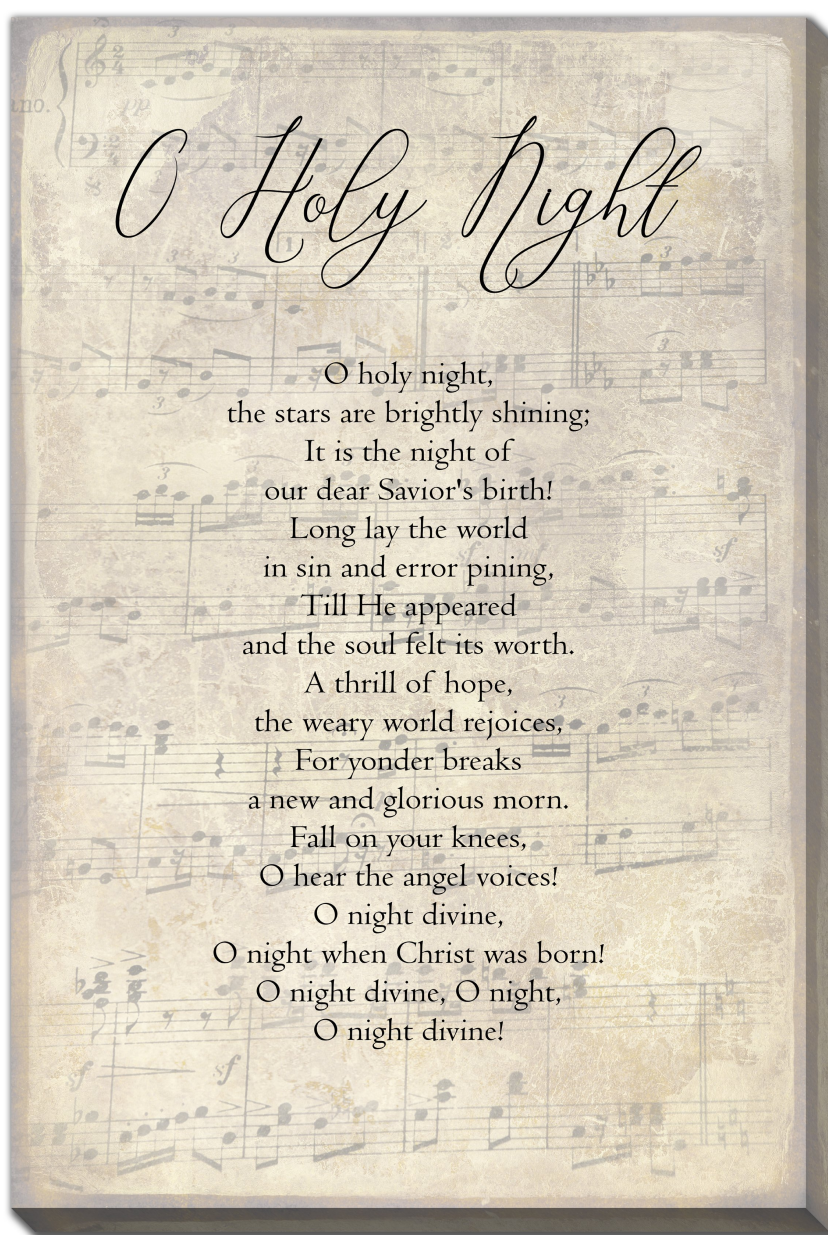 ino.
pp
O Holy Night
1
O holy night,
the stars are brightly shining;
It is the night of
our dear Savior's birth!
Long lay the world
in sin and error pining,
Till He appeared
and the soul felt its worth.
A thrill of hope,
the weary world rejoices,
For yonder breaks
a new and glorious morn.
Fall on your knees,
O hear the angel voices!
O night divine,
O night when Christ was born!
O night divine, O night,
O night divine!
sf
sf